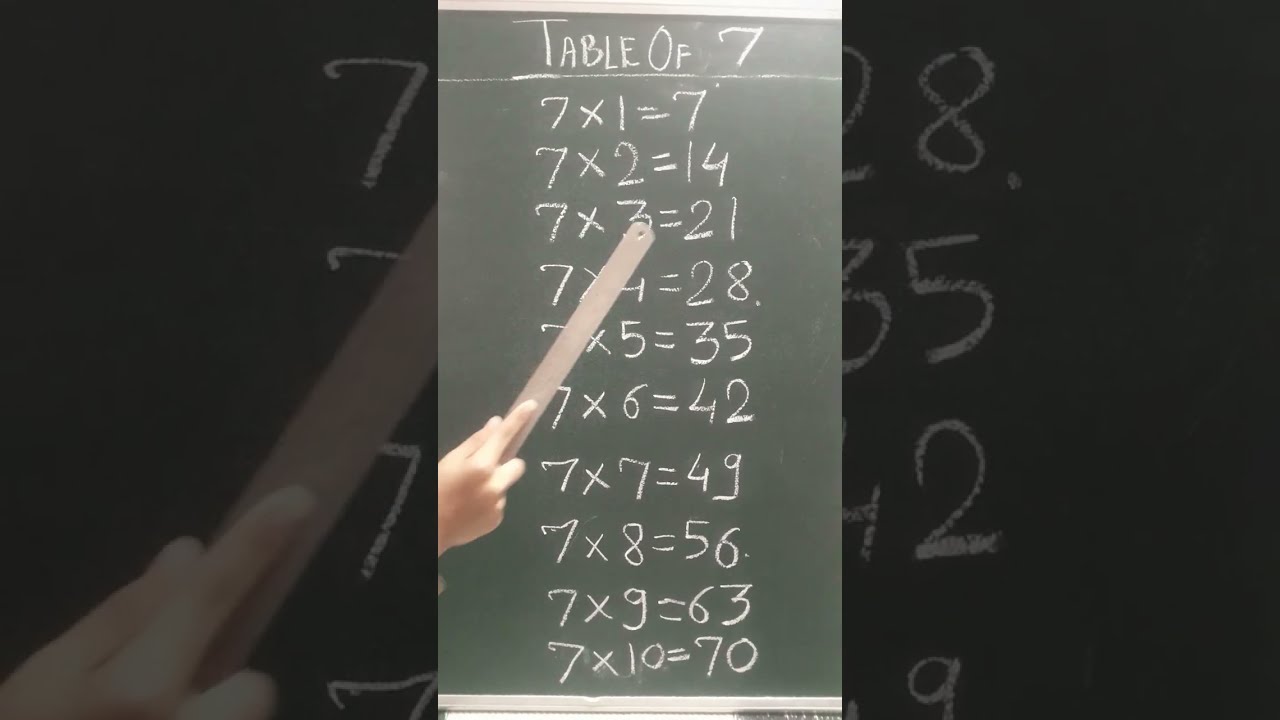 TABLE OF 7
7×1=7
7×2=14
7×3=21
7×4=28.
7×5=35
7×6=42
7×7=49
7×8=56.
7×9=63
7×10=70